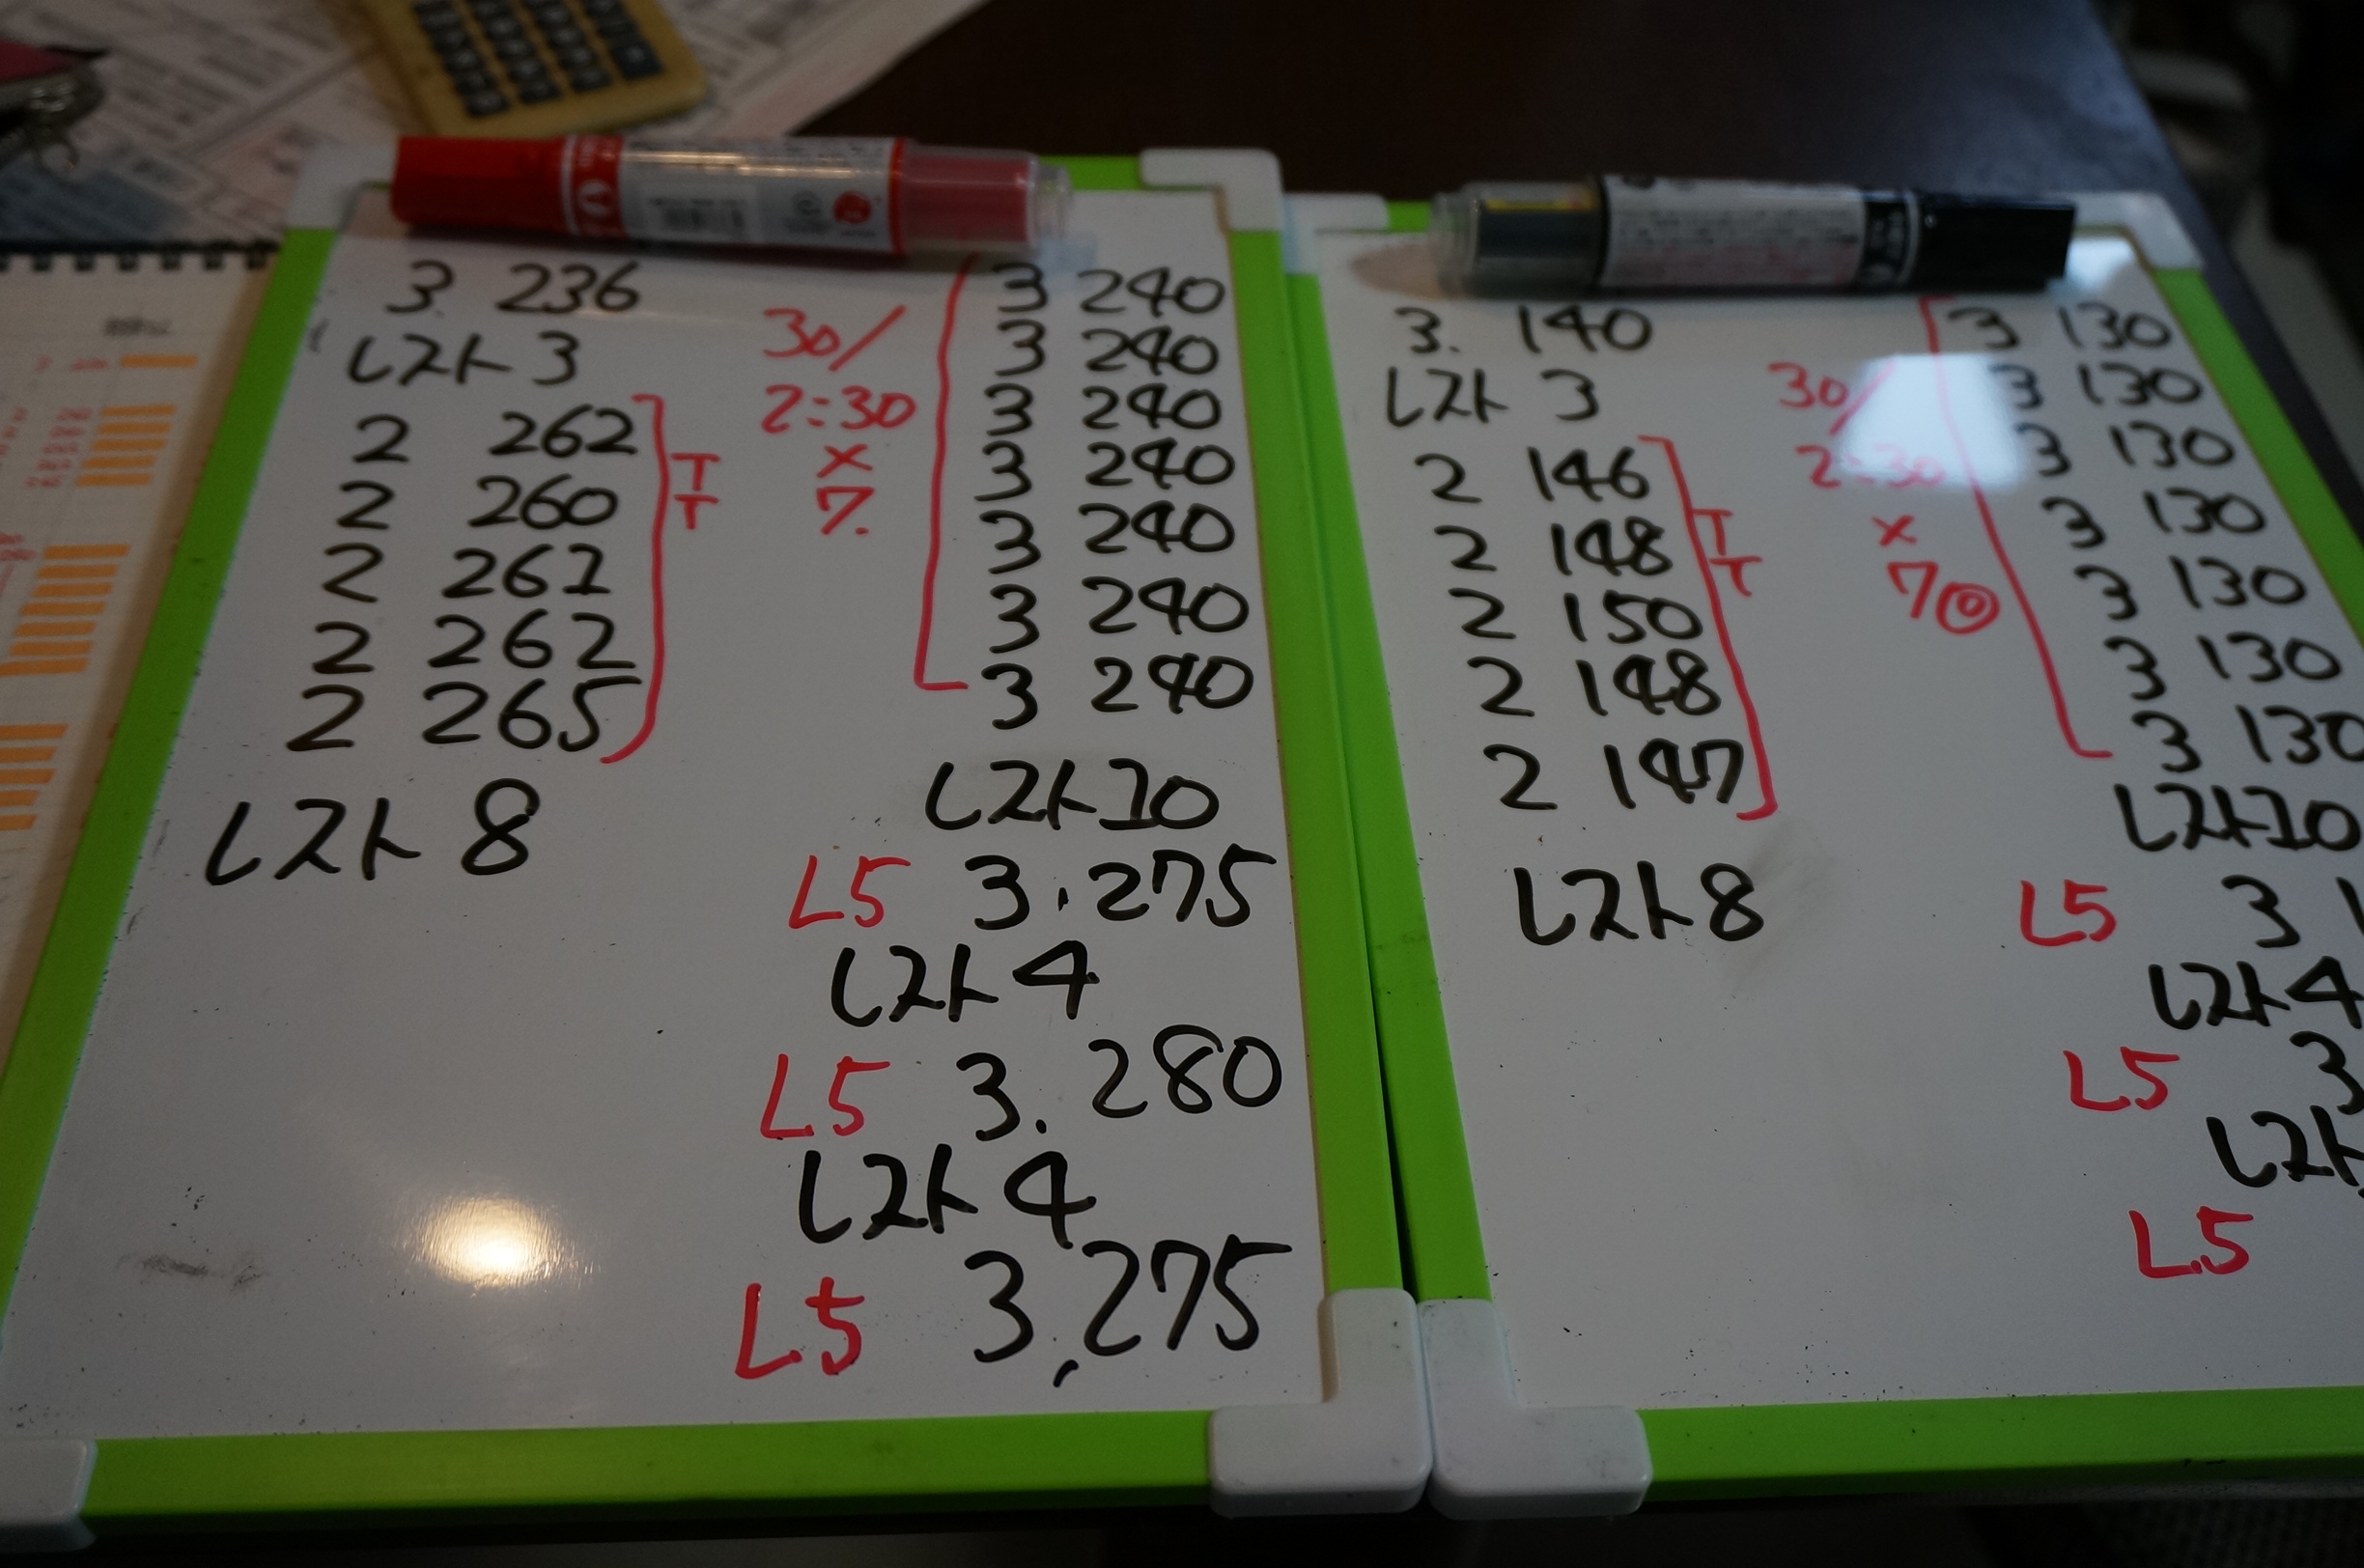 3. 236
レスト 3
2 262
2 260
2 261
2 262
2 265
TT
レスト 8
30/
2:30
×
7.
3 240
3 240
3 240
3 240
3 240
3 240
3 240
レスト10
L5 3.275
レスト4
L5 3.280
レスト4
L5 3,275
3. 140
レスト 3
2 146
2 148
2 150
2 148
2 147
TT
レスト8
30/
2:30
×
7⓪
3 130
3 130
3 130
3 130
3 130
3 130
3 130
レスト10
L5 3
レスト4
L5 3
レスト
L5